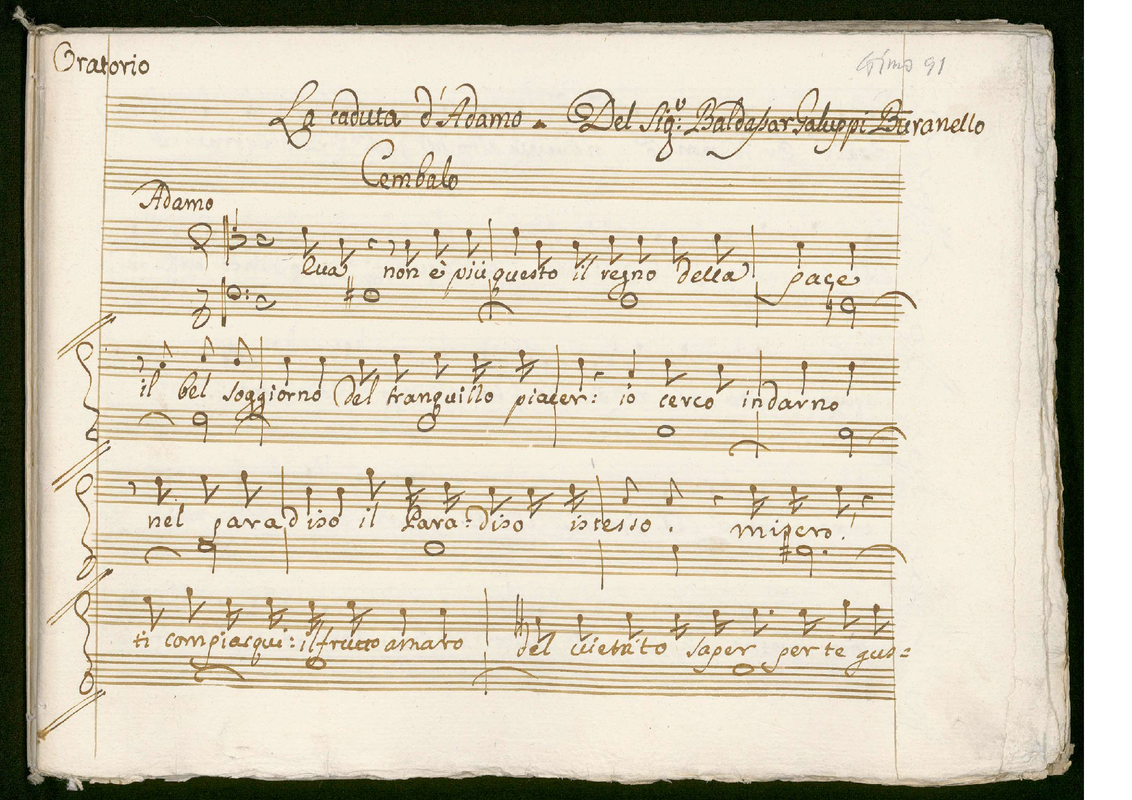 Oratorio
Gimo 91
La caduta d'Adamo. Del Sig.r Baldassar Galuppi Buranello
Cembalo
Adamo
Eua non è più questo il regno della pace
il bel soggiorno del tranquillo piacer: io cerco indarno
nel paradiso il Para:diso istesso. misero!
ti compiacqui: il frutto amaro del uietato saper per te gus=